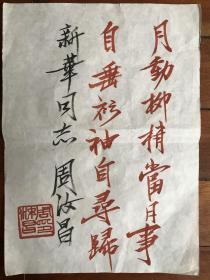 月動柳梢當月事
自垂衫袖自尋歸
新華同志 周汝昌